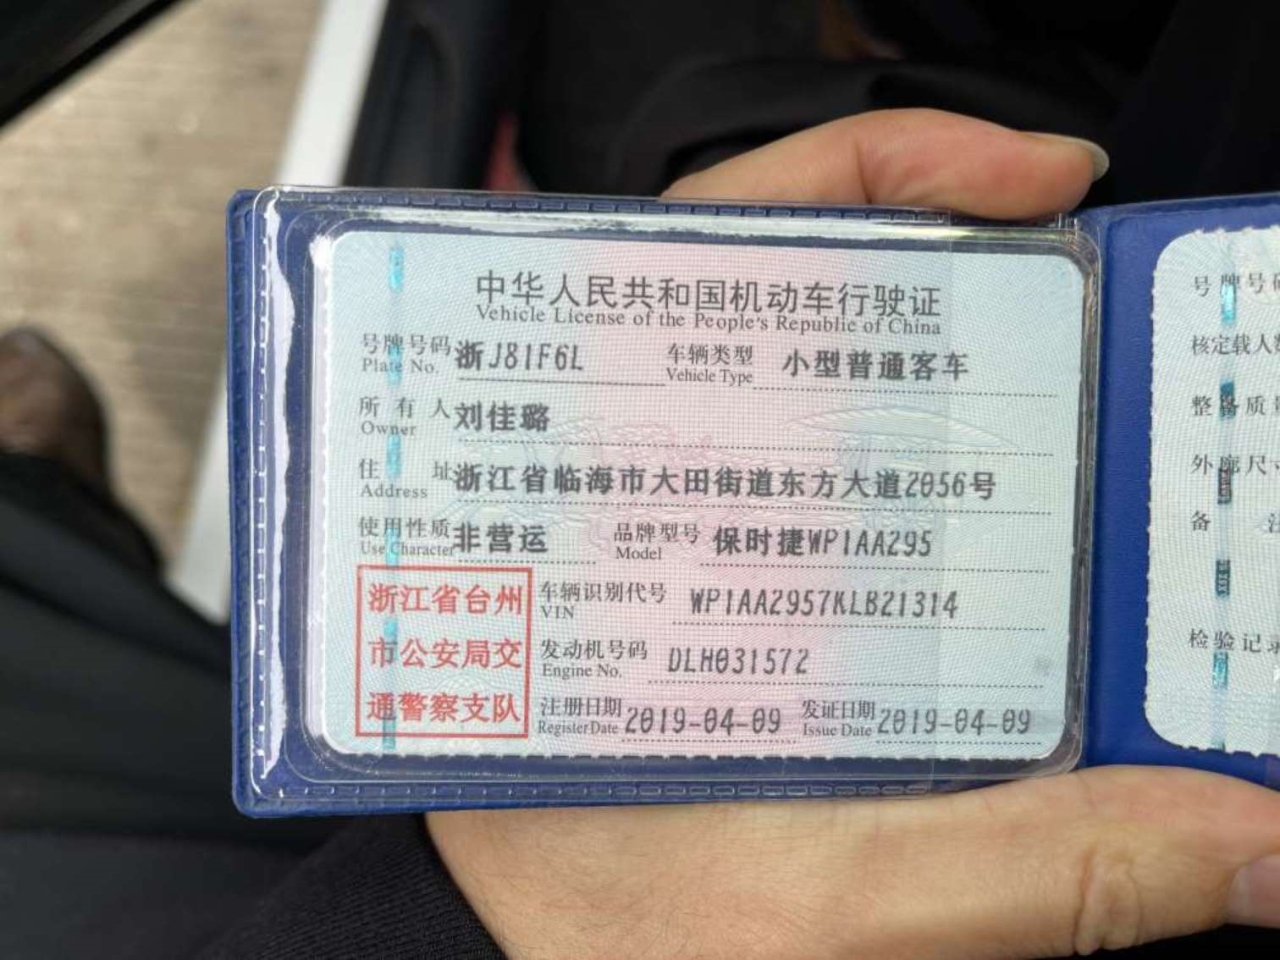 中华人民共和国机动车行驶证
Vehicle License of the People's Republic of China
号牌号码 浙J81F6L 车辆类型 小型普通客车
Plate No. Vehicle Type
所有人 刘佳璐
Owner
住址 浙江省临海市大田街道东方大道2056号
Address
使用性质 非营运 品牌型号 保时捷WP1AA295
Use Character Model
浙江省台州
市公安局交
通警察支队
车辆识别代号 WP1AA2957KLB21314
VIN
发动机号码 DLH031572
Engine No.
注册日期 2019-04-09 发证日期 2019-04-09
Register Date Issue Date
号牌号码
核定载人数
整备质
外廓尺寸
备
检验记录